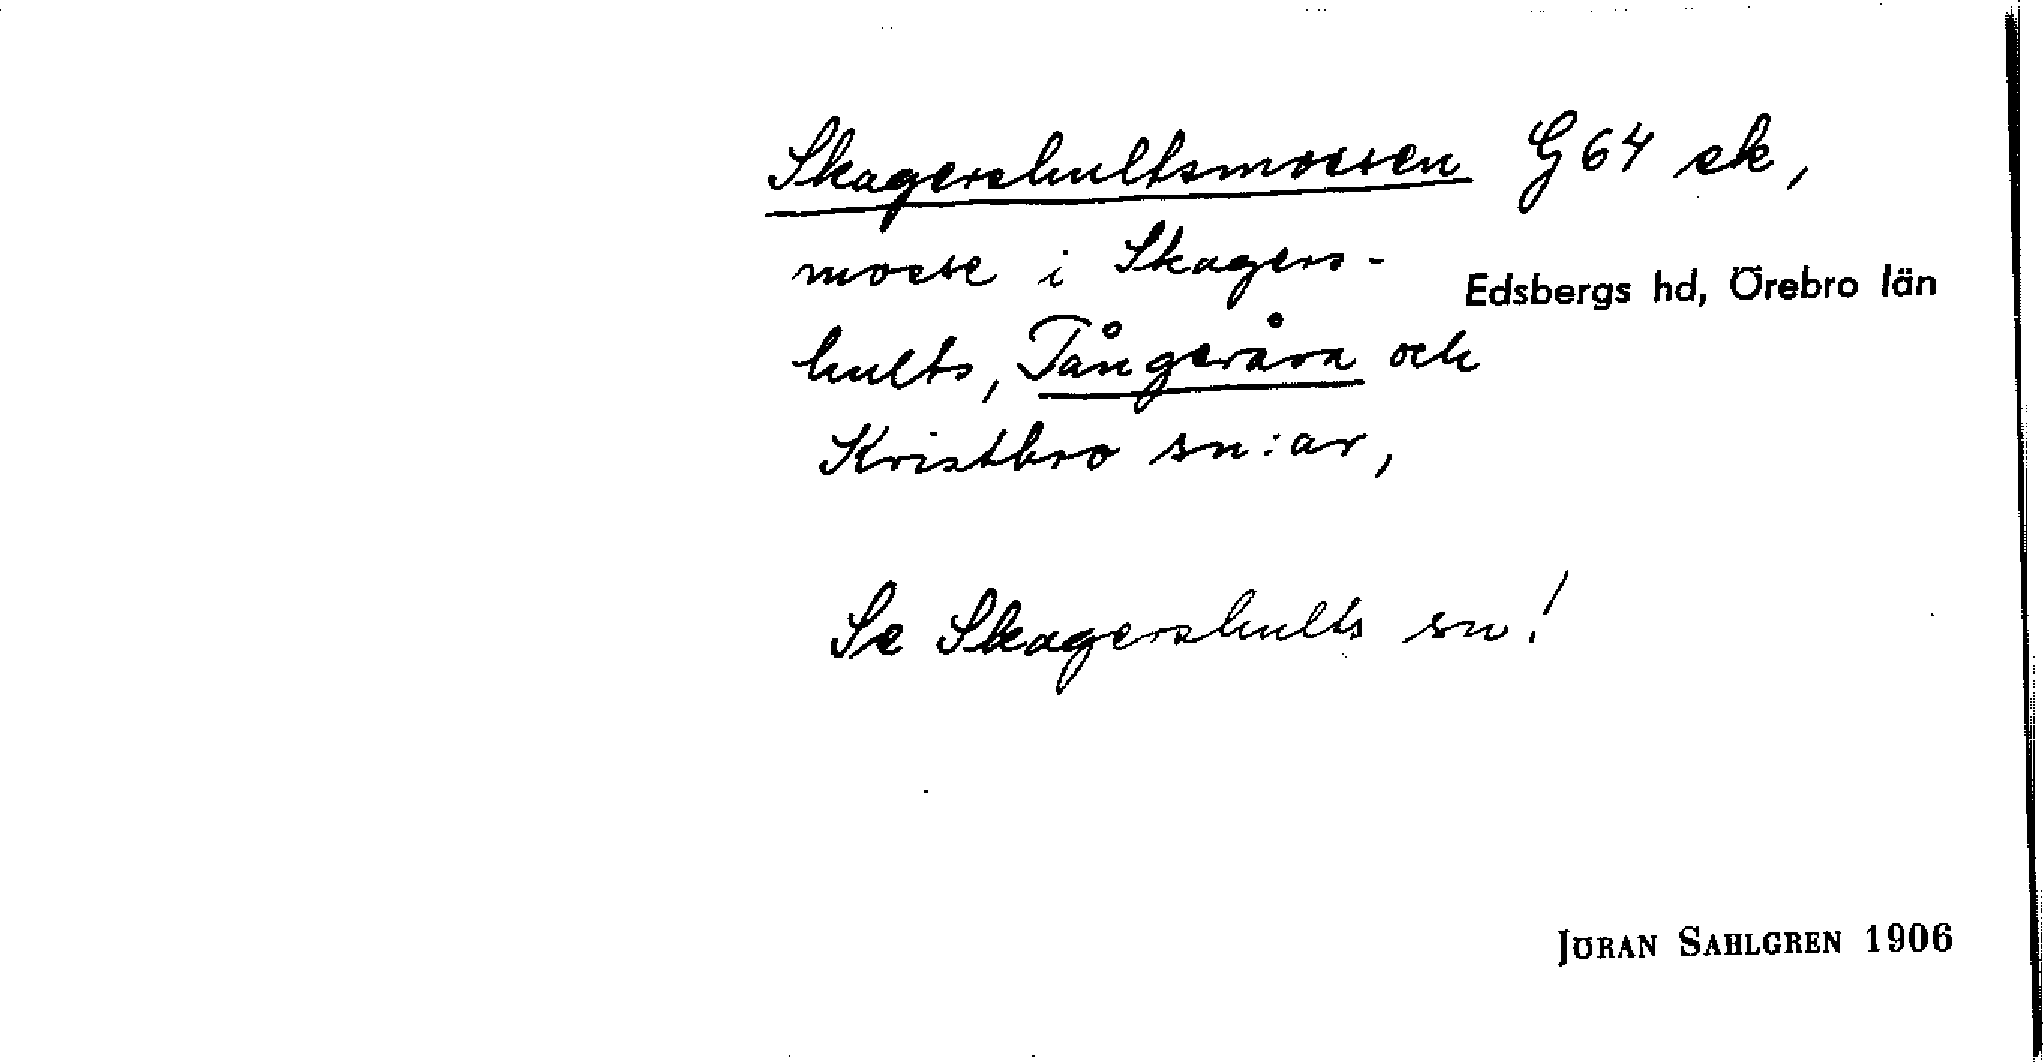 Skagershultsmossen G 64 ek,
mosse i Skagers-
Edsbergs hd, Örebro län
hults, Tångeråsa och
Kristbro sn:ar,
Se Skagershults sn!
JÖRAN SAHLGREN 1906